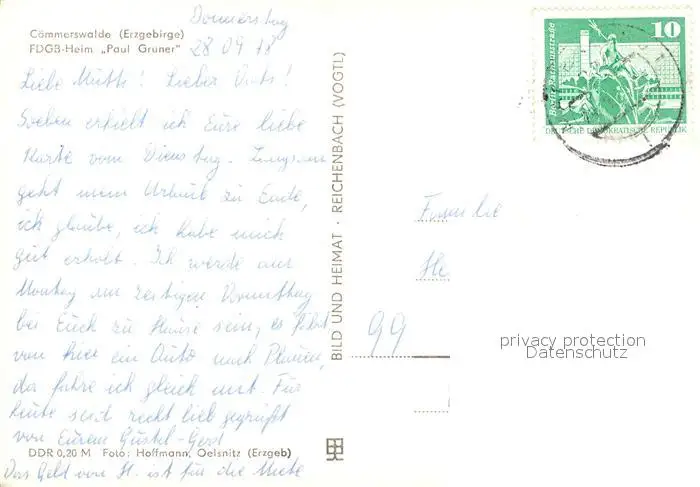 Donnerstag
28 09 78
Cämmerswalde (Erzgebirge)
FDGB-Heim „Paul Gruner"
Liebe Mutti! Lieber Vati!
Soeben erhielt ich Eure liebe
Karte vom Dienstag. Langsam
geht mein Urlaub zu Ende,
ich glaube, ich habe mich
gut erholt. Ich werde am
Montag am zeitigen Vormittag
bei Euch zu Hause sein, es fährt
von hier ein Auto nach Plauen,
da fahre ich gleich mit. Für
heute seid recht lieb gegrüßt
von Eurem Gustel-Gerd
DDR 0,20 M Foto: Hoffmann, Oelsnitz (Erzgeb)
Das Geld von H. ist für die Miete
BILD UND HEIMAT · REICHENBACH (VOGTL)
10
DEUTSCHE DEMOKRATISCHE REPUBLIK
Familie
He
99
privacy protection
Datenschutz